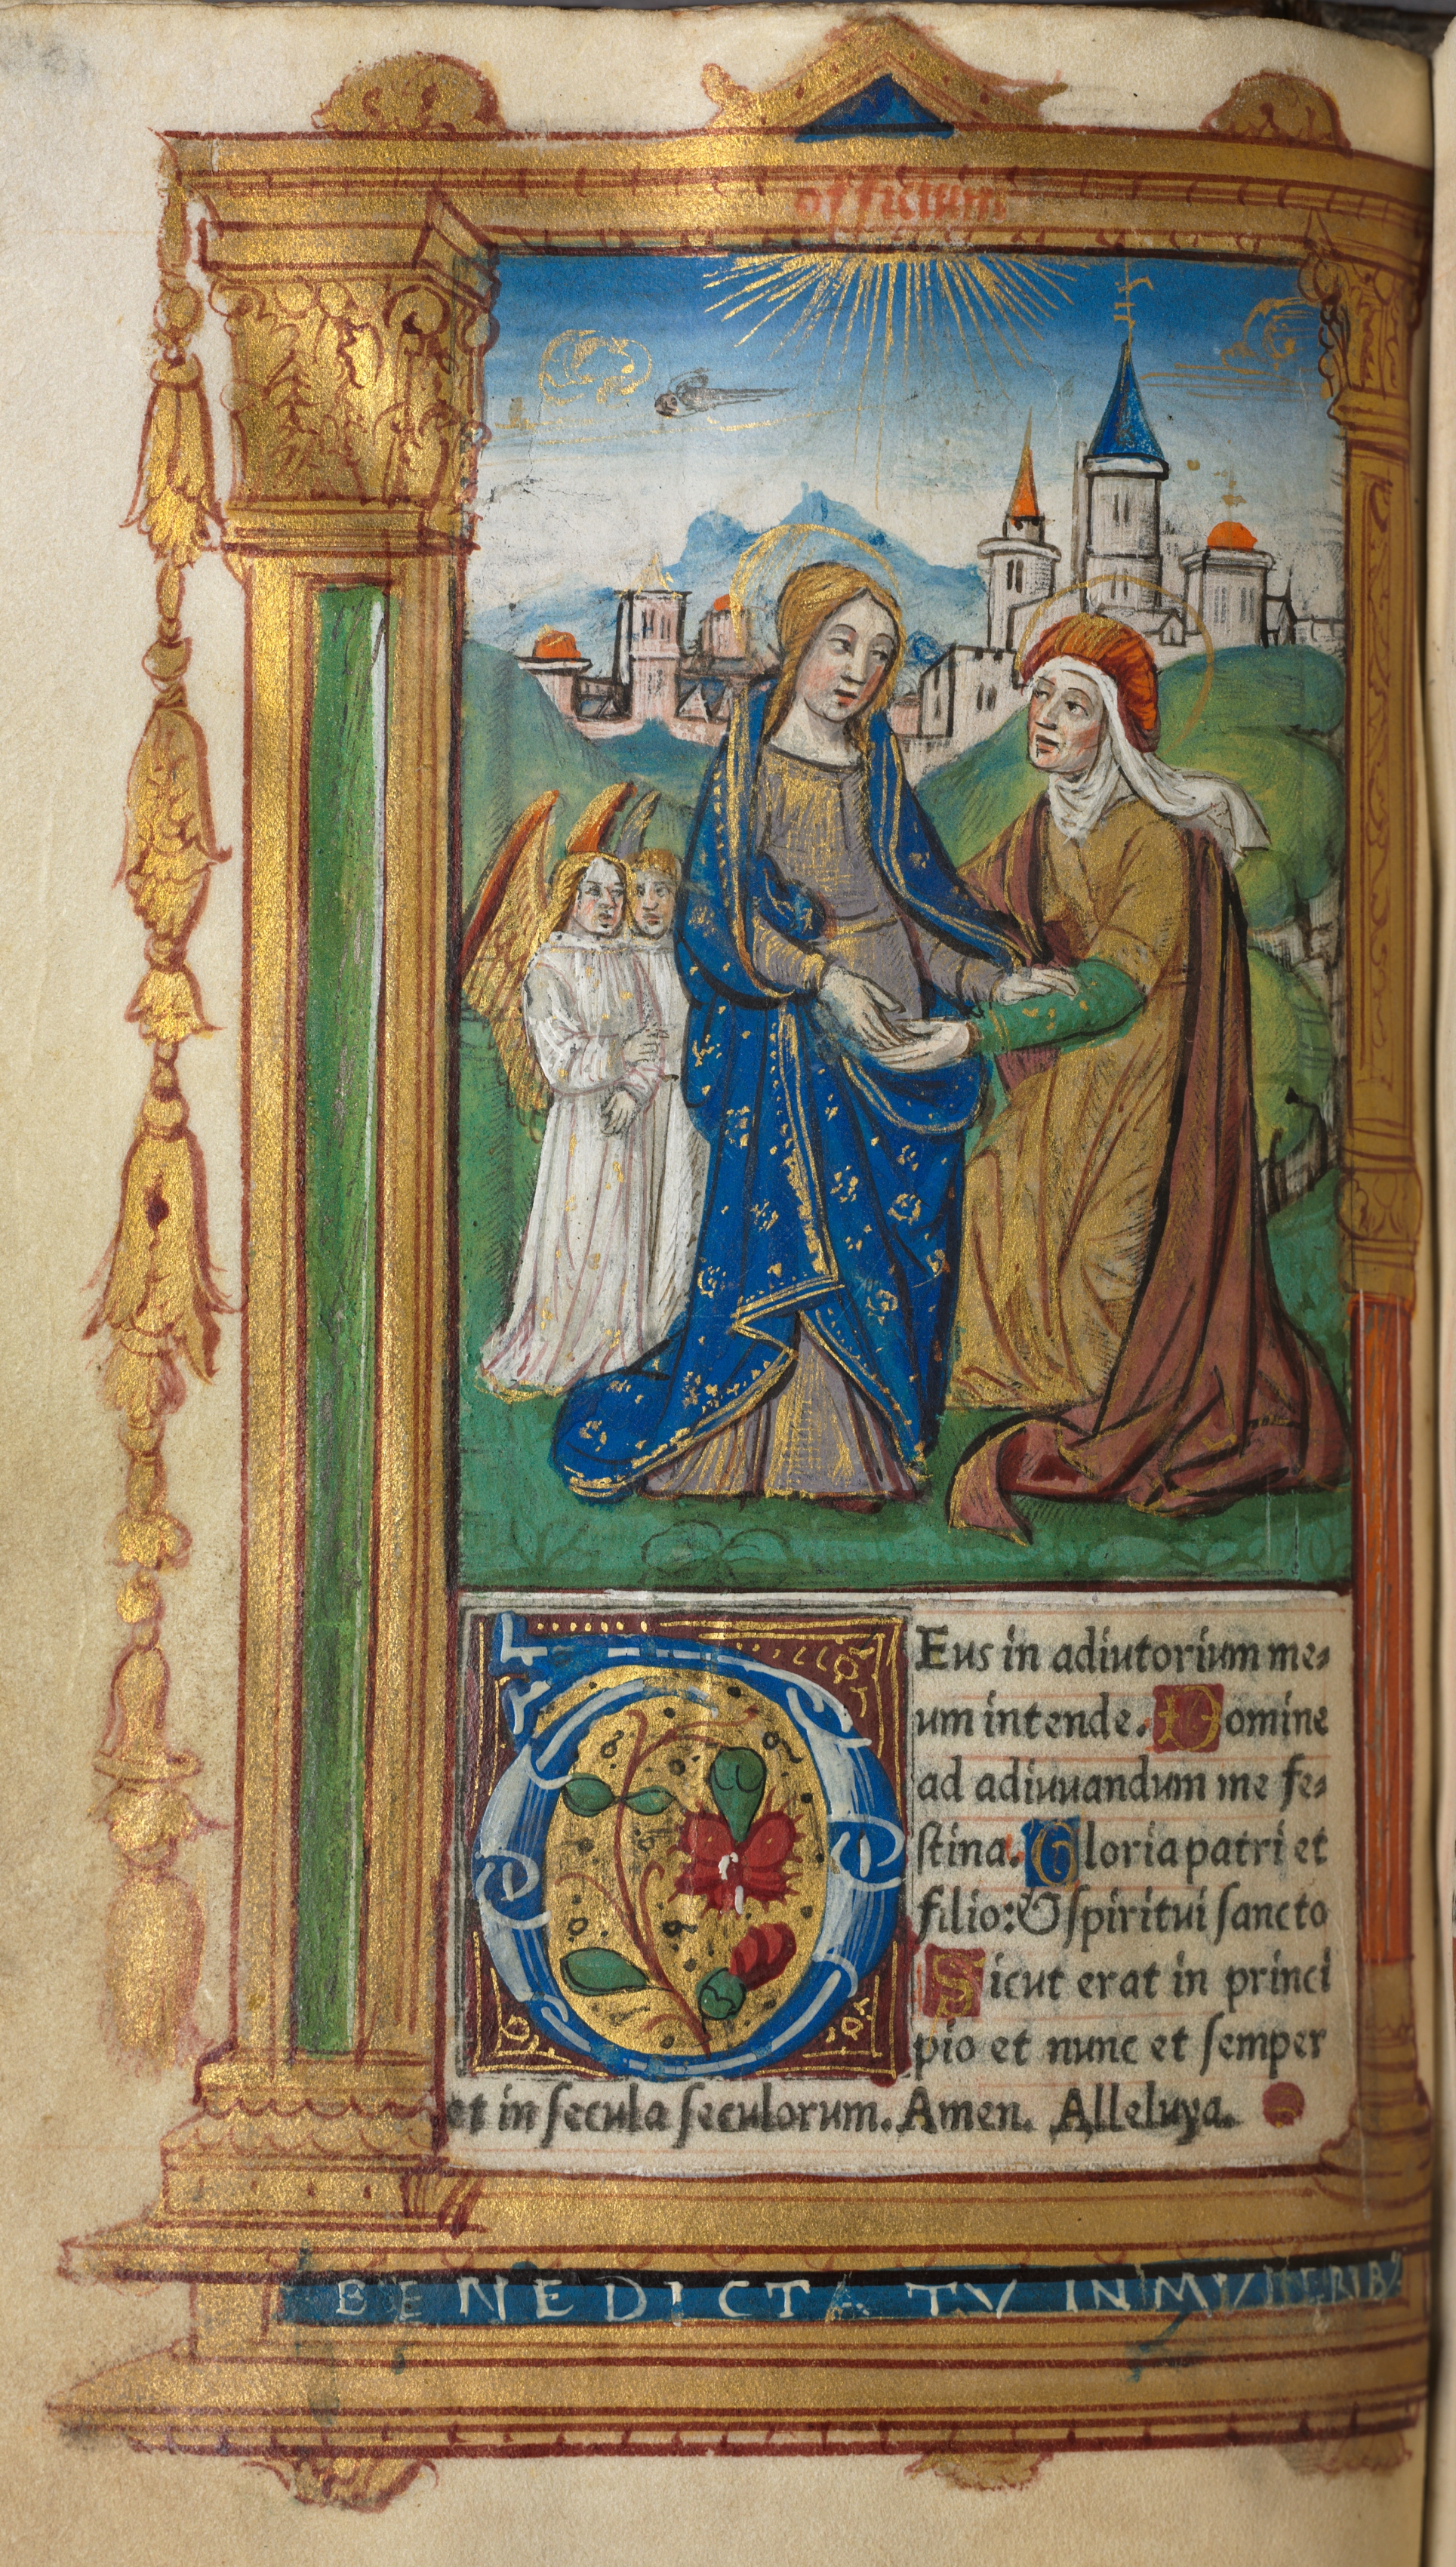 officium
DEus in adiutorium me⸗
um intende. Domine
ad adiuuandum me fe⸗
ſtina. Gloria patri et
filio: & ſpiritui ſancto
Sicut erat in princi
pio et nunc et ſemper
et in ſecula ſeculorum. Amen. Alleluya.
BENEDICTA TV IN MVLIERIBV